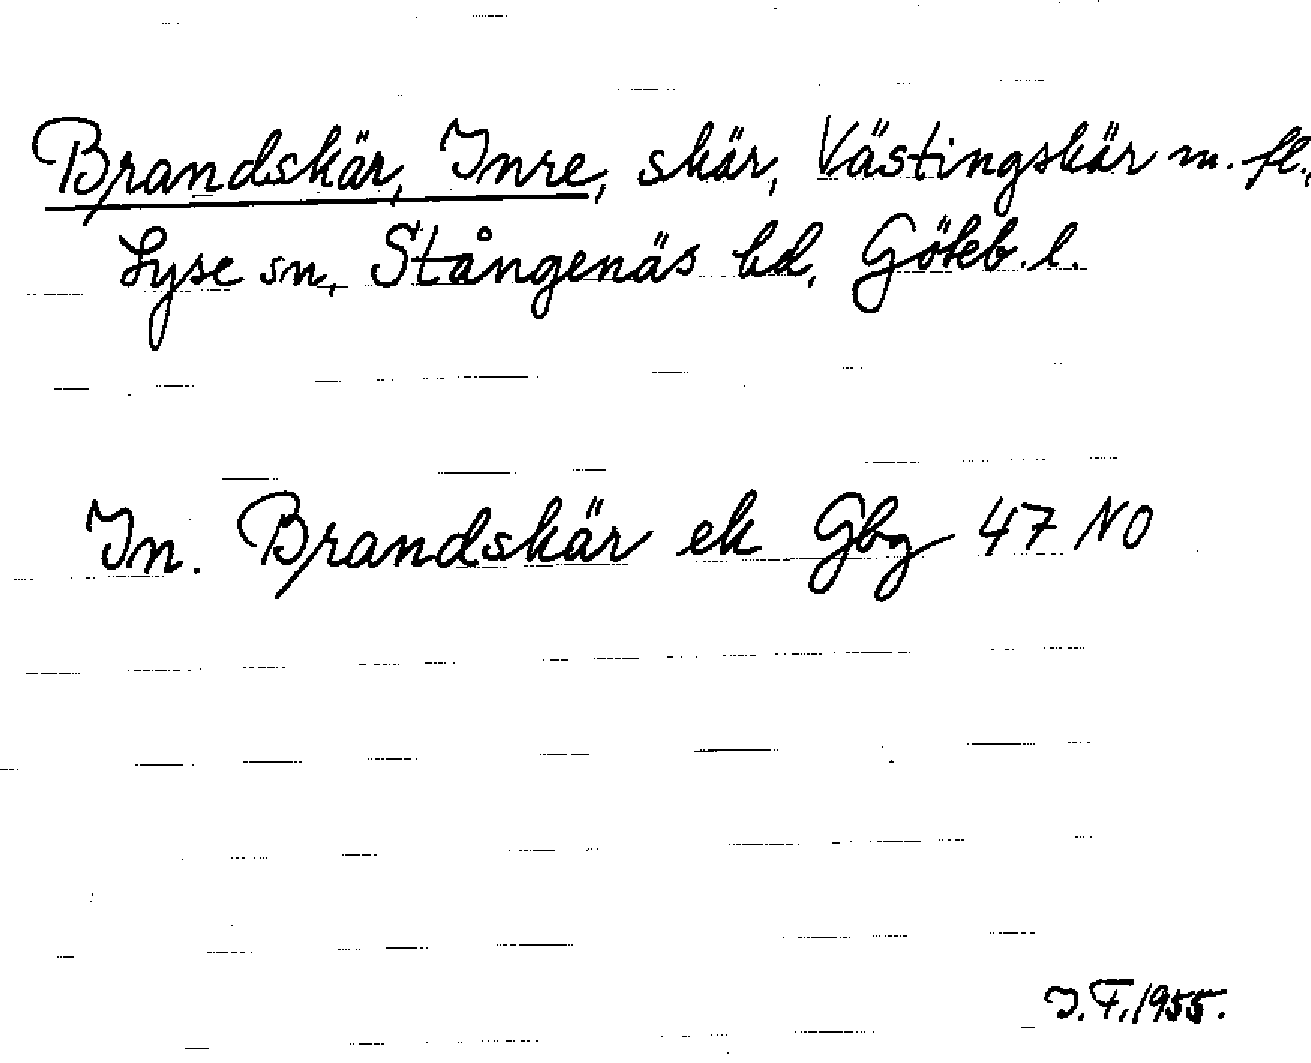 Brandskär, Inre, skär, Västingskär m. fl.,
Lyse sn, Stångenäs hd, Göteb. l.
In. Brandskär ek Gbg 47 NO
I. F. 1955.